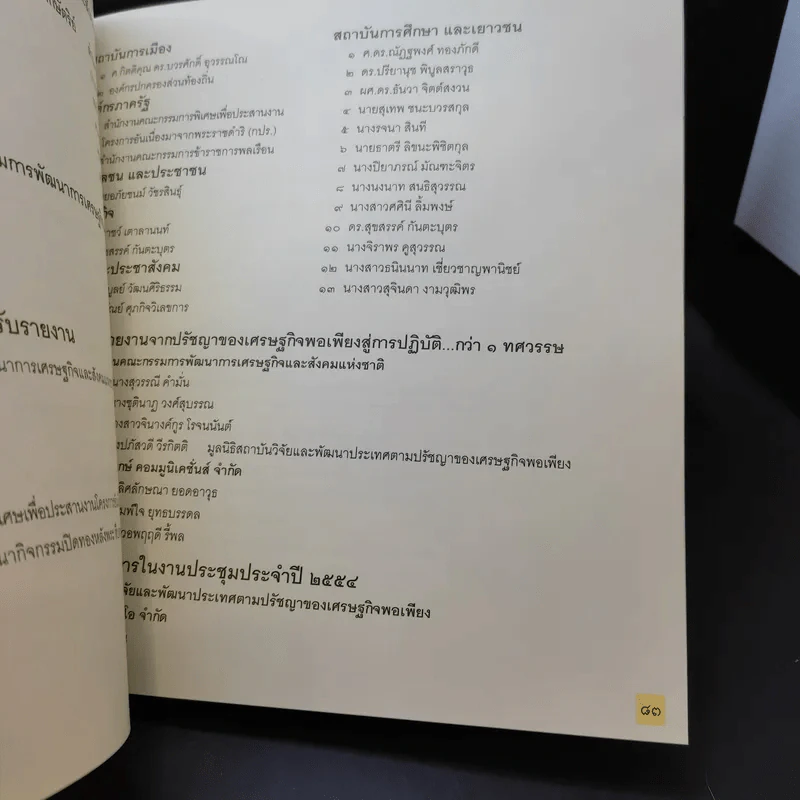 สถาบันการเมือง
๑ ศ.กิตติคุณ ดร.บวรศักดิ์ อุวรรณโณ
๒ องค์กรปกครองส่วนท้องถิ่น
องค์กรภาครัฐ
สำนักงานคณะกรรมการพิเศษเพื่อประสานงาน
โครงการอันเนื่องมาจากพระราชดำริ (กปร.)
สำนักงานคณะกรรมการข้าราชการพลเรือน
และประชาชน
อภัยชนม์ วัชรสินธุ์
เตาลานนท์
กันตะบุตร
ประชาสังคม
วัฒนศิริธรรม
ศุภกิจวิเลขการ
สถาบันการศึกษา และเยาวชน
๑ ศ.ดร.ณัฏฐพงศ์ ทองภักดี
๒ ดร.ปรียานุช พิบูลสราวุธ
๓ ผศ.ดร.ธันวา จิตต์สงวน
๔ นายสุเทพ ชนะบวรสกุล
๕ นางรจนา สินที
๖ นายธาตรี ลิขนะพิชิตกุล
๗ นางปิยาภรณ์ มัณฑะจิตร
๘ นางนงนาท สนธิสุวรรณ
๙ นางสาวศศินี ลิ้มพงษ์
๑๐ ดร.สุขสรรค์ กันตะบุตร
๑๑ นางจิราพร คูสุวรรณ
๑๒ นางสาวธนินนาท เชี่ยวชาญพานิชย์
๑๓ นางสาวสุจินดา งามวุฒิพร
รายงานจากปรัชญาของเศรษฐกิจพอเพียงสู่การปฏิบัติ...กว่า ๑ ทศวรรษ
คณะกรรมการพัฒนาการเศรษฐกิจและสังคมแห่งชาติ
นางสุวรรณี คำมั่น
วงศ์สุบรรณ
โรจนนันต์
วีรกิตติ มูลนิธิสถาบันวิจัยและพัฒนาประเทศตามปรัชญาของเศรษฐกิจพอเพียง
คอมมูนิเคชั่นส์ จำกัด
ยอดอาวุธ
ยุทธบรรดล
รี้พล
การในงานประชุมประจำปี ๒๕๕๔
วิจัยและพัฒนาประเทศตามปรัชญาของเศรษฐกิจพอเพียง
จำกัด
๘๓
การพัฒนาการเศรษฐกิจ
รับรายงาน
นาการเศรษฐกิจและสังคม
เศษเพื่อประสานงานโครงการ
นากิจกรรมปิดทองหลังพระ